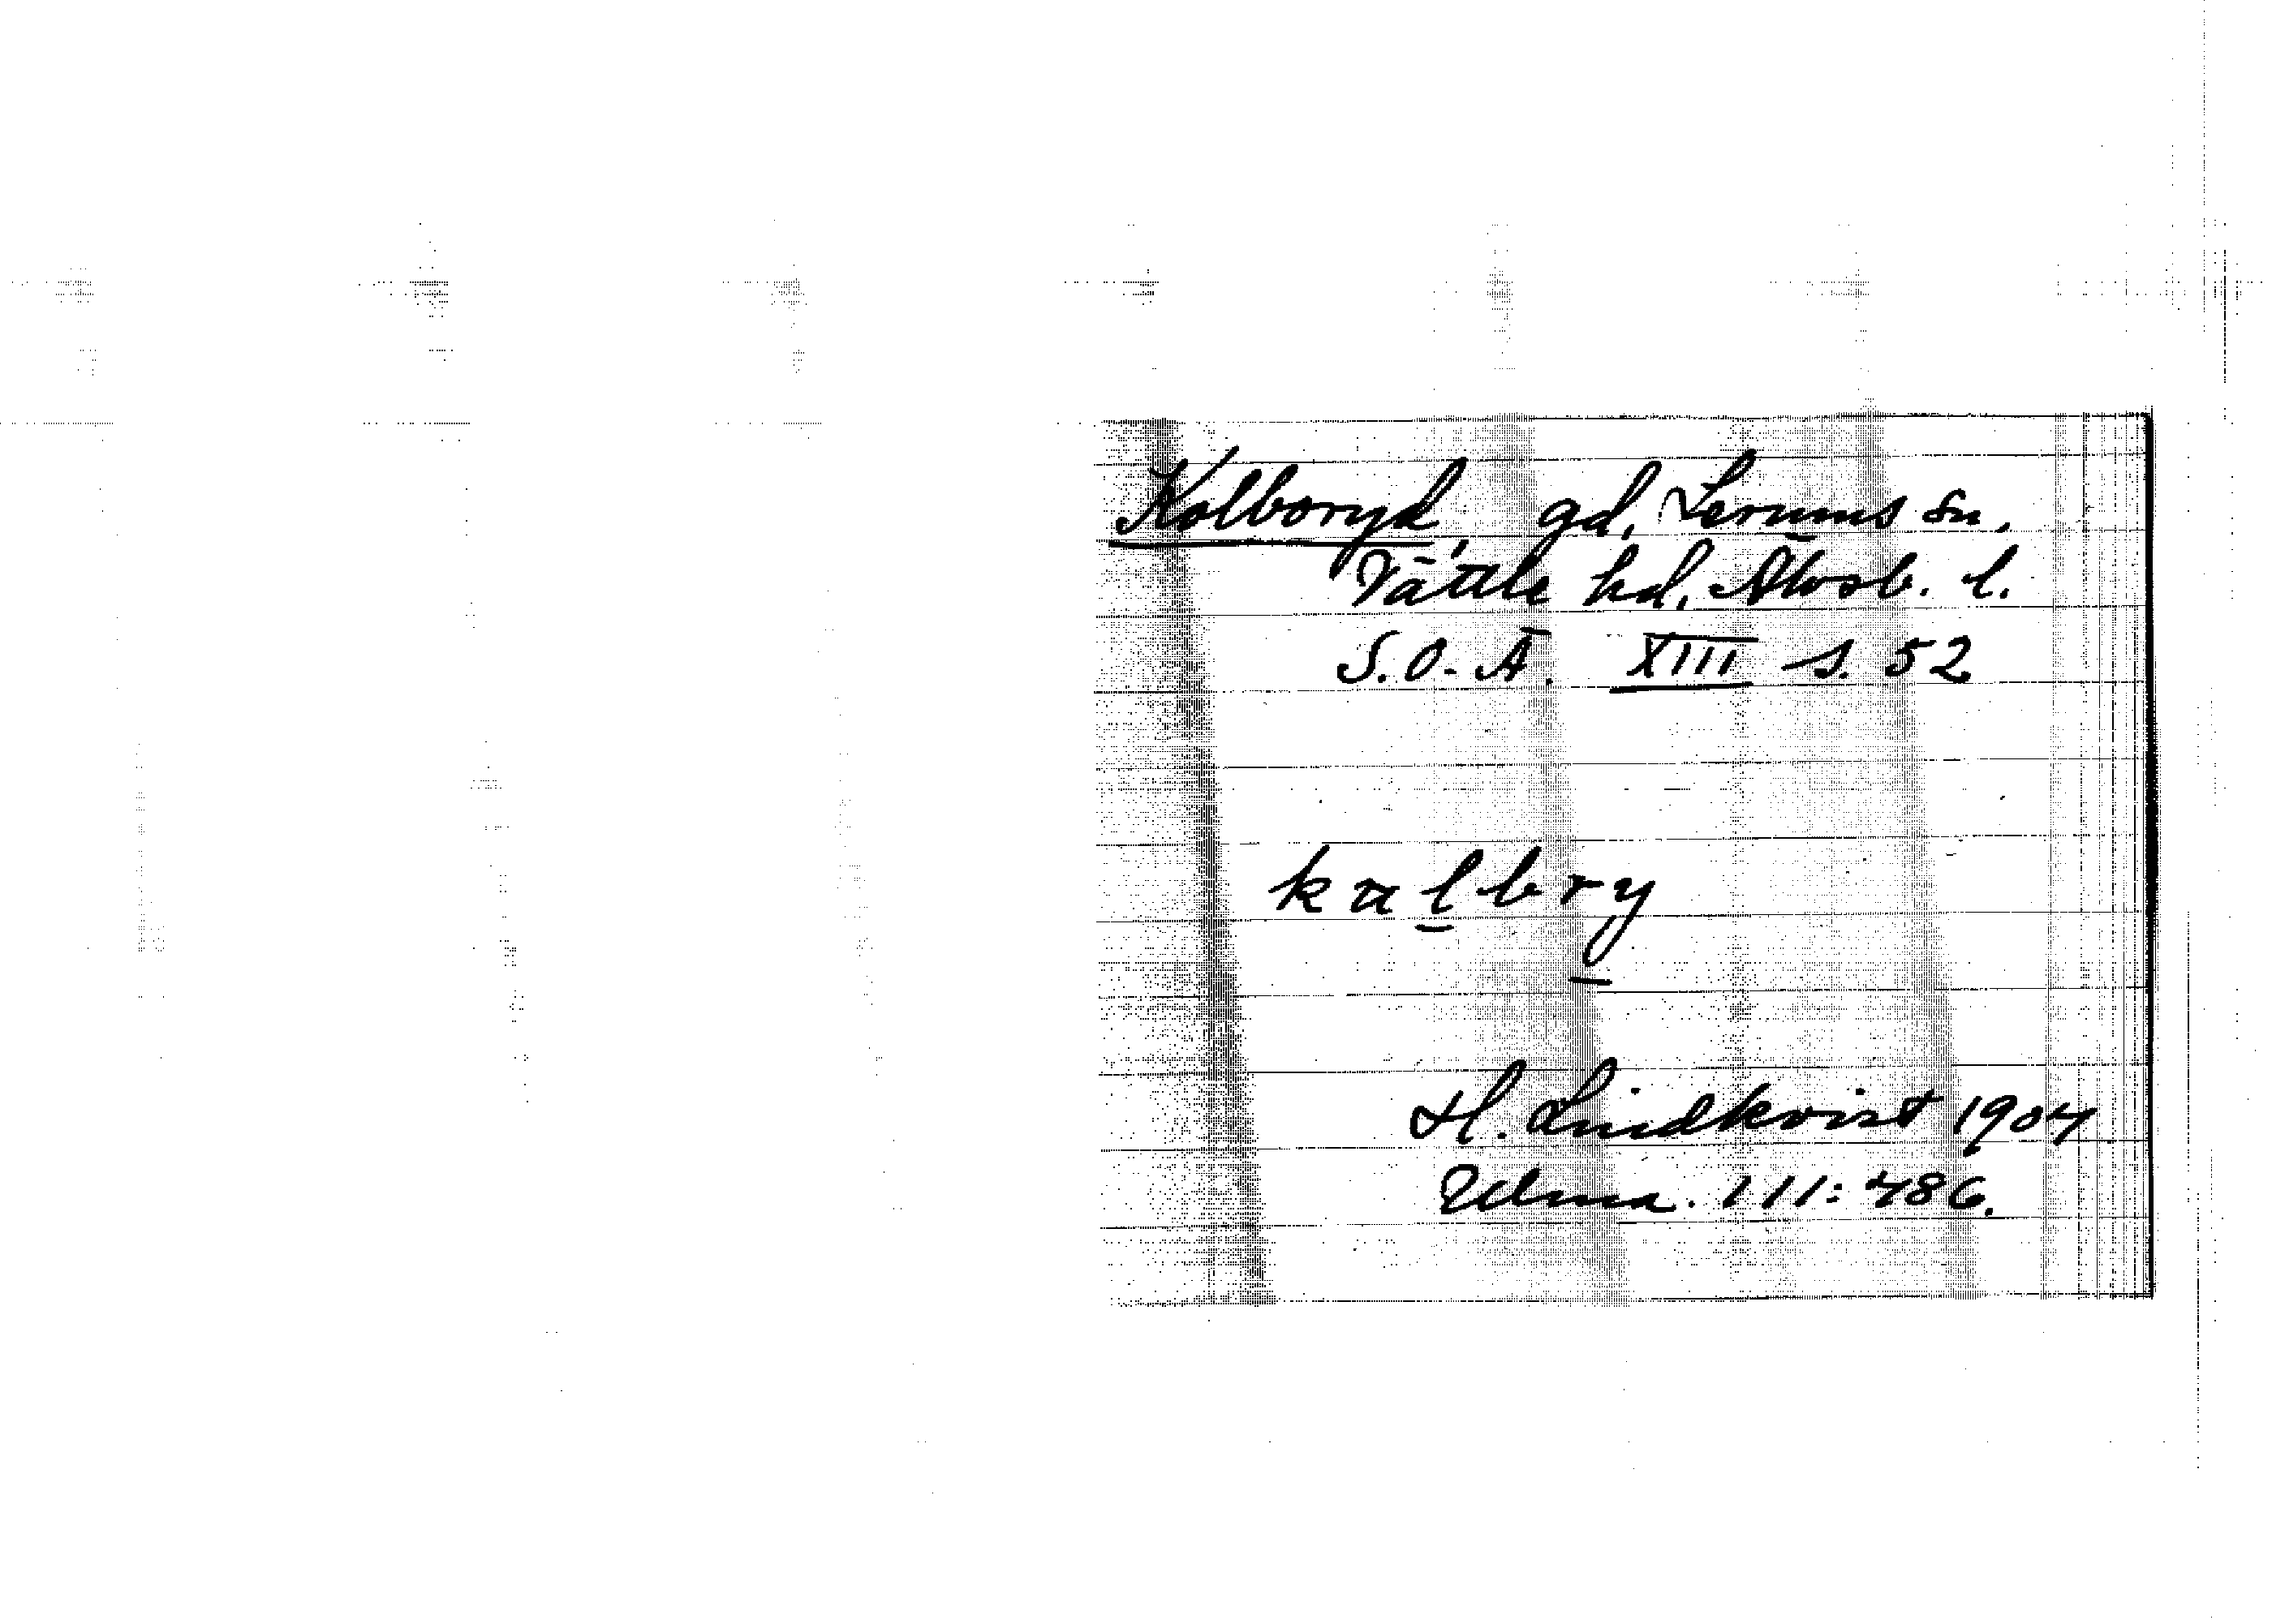 Kolboryd, gd, Lerums sn,
Vättle hd, Älvsb. l.
S.O.Ä. XIII s. 52
kalbry
H. Lindkvist 1904
111:486.